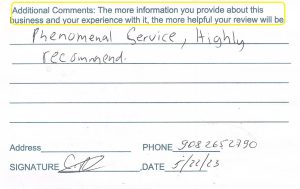 Additional Comments: The more information you provide about this
business and your experience with it, the more helpful your review will be
Phenomenal Service, Highly
recommend.
Address PHONE 908 265 2790
SIGNATURE ,DATE 5/22/23